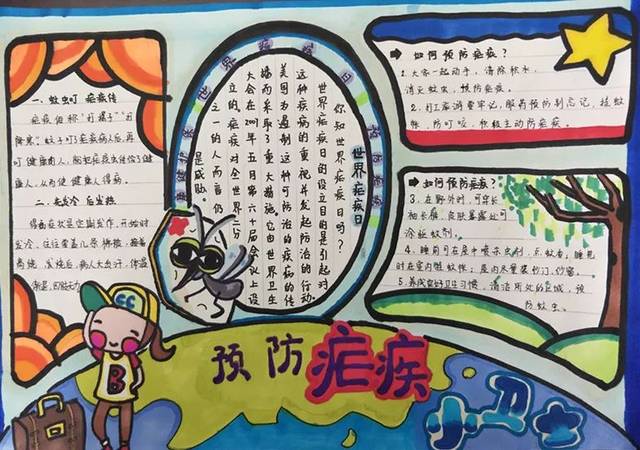 一、蚊虫叮 疟疾传
疟疾俗称"打摆子""打
脾寒"。蚊子叮了疟疾病人后,再
叮健康的人,能把疟疾虫传给了健
康人,从而使健康人得病。
二、先发冷 后发热
得病症状是定期发作,开始时
发冷,往往要盖几条棉被,接着
高烧,发烧后,病人大出汗,体温
渐退,四肢无力。
世界疟疾日
世界疟疾日
你知世界疟疾日吗?
世界疟疾日的设立目的是引起对
这种疾病的重视并发起防治的行动。
美国为遏制这种可防治的疾病的传
播而采取了重大措施。它由世界卫生
大会在2007年五月第六十届会议上设
立的。疟疾对全世界
之一的人而言仍
是威胁。
➡ 如何预防疟疾?
1.大家一起动手,清除积水,
消灭蚊虫,预防疟疾。
2.打工旅游要牢记,服药预防别忘记,挂蚊
帐,防叮咬,积极主动防疟疾。
➡ 如何预防疟疾?
3.在野外时,可穿长
袖长裤,皮肤暴露处可
涂驱蚊剂。
4.睡前可在屋中喷杀虫剂,点蚊香,睡觉
时在室内挂蚊帐;屋内尽量装纱门,纱窗。
5.养成良好卫生习惯,清洁周处的区域,预
防蚊虫。
CC
B
预防疟疾
小卫士